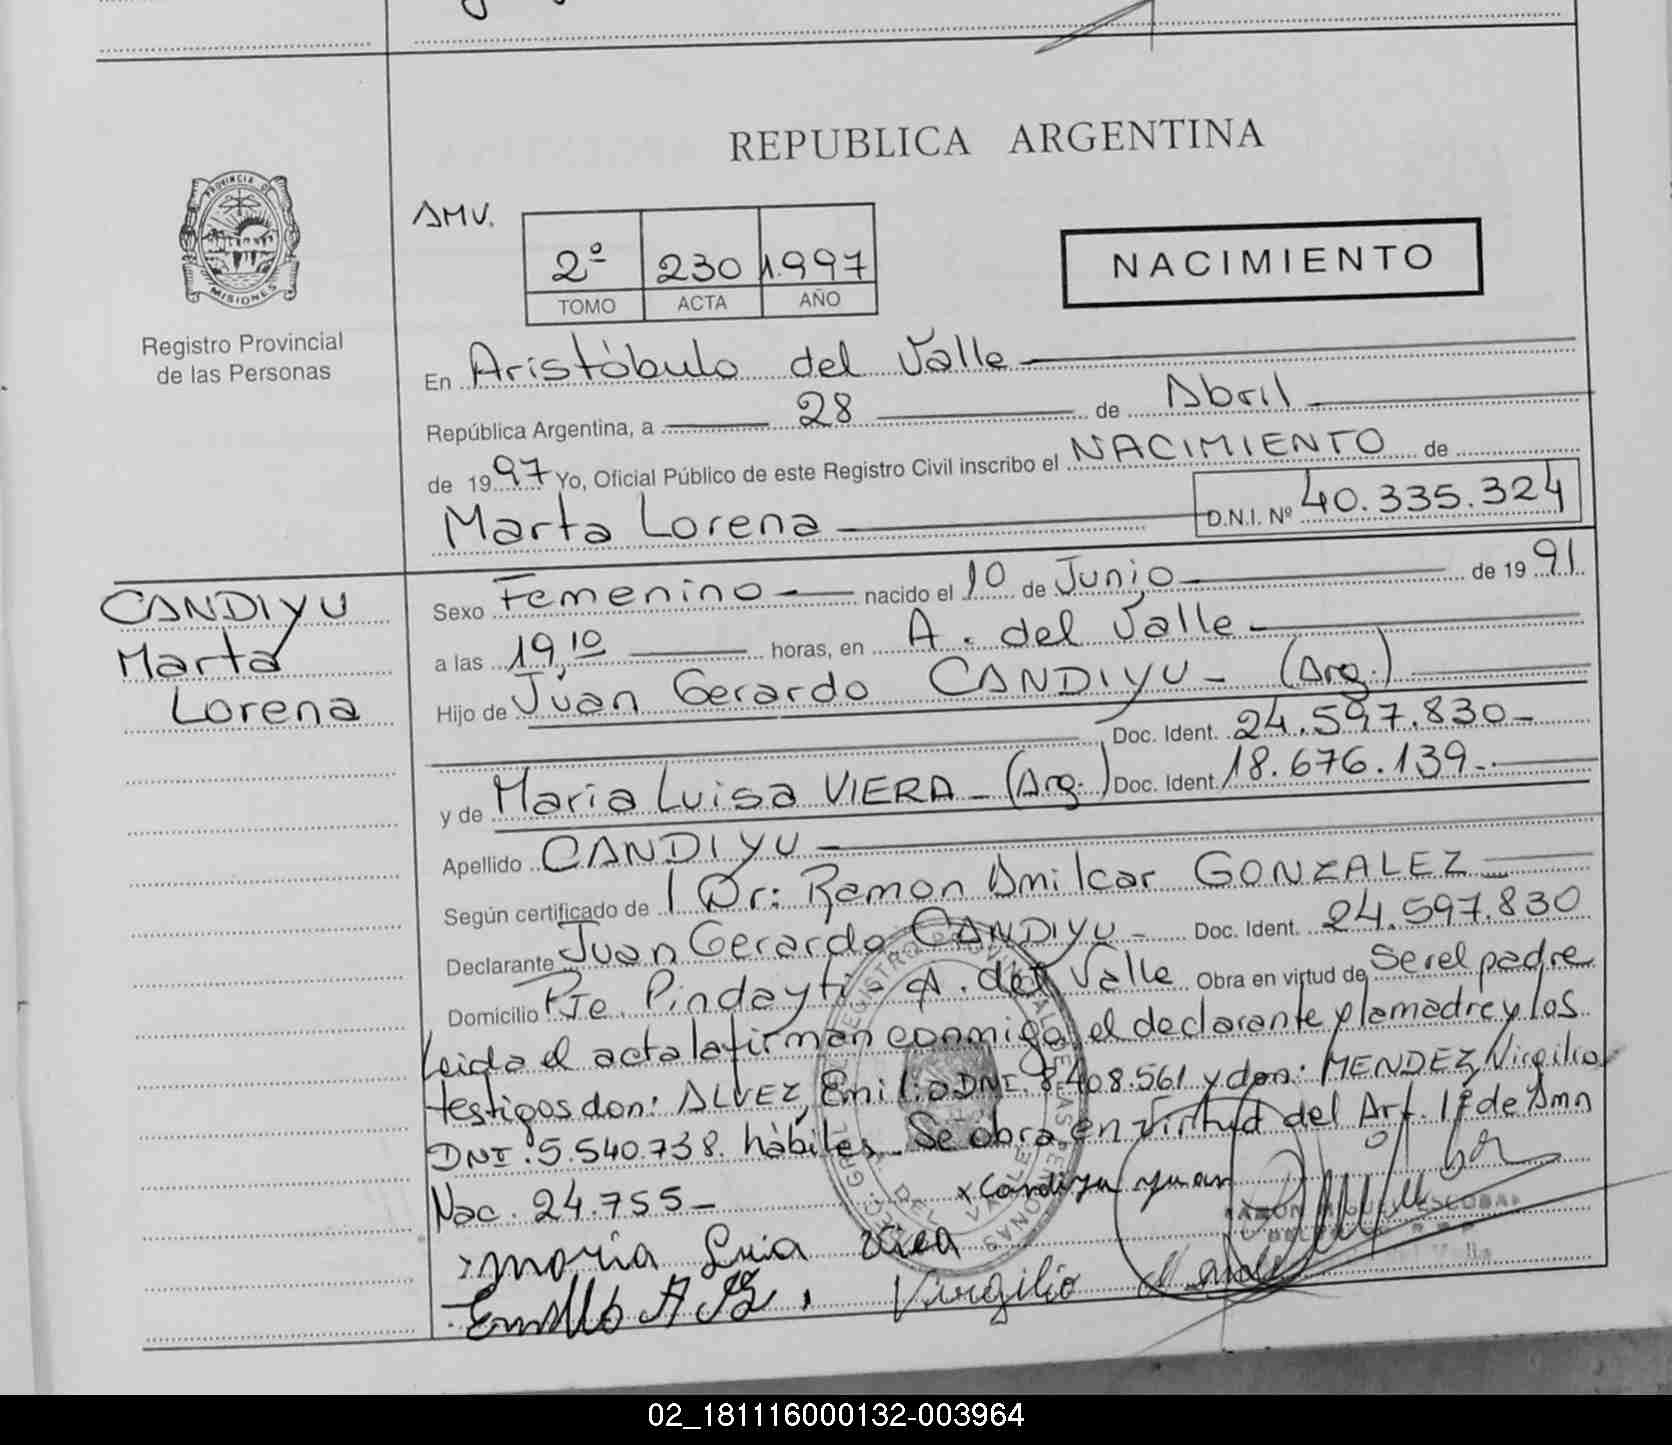 REPUBLICA ARGENTINA
PROVINCIA DE
MISIONES
Registro Provincial
de las Personas
AMV.
2º 230 1.997
TOMO ACTA AÑO
NACIMIENTO
En Aristóbulo del Valle
República Argentina, a 28 de Abril
de 1997 Yo, Oficial Público de este Registro Civil inscribo el NACIMIENTO de
Marta Lorena D.N.I. Nº 40.335.324
CANDIYU
Marta
Lorena
Sexo Femenino nacido el 10 de Junio de 1991
a las 19,10 horas, en A. del Valle
Hijo de Juan Gerardo CANDIYU - (Arg.)
Doc. Ident. 24.597.830-
y de Maria Luisa VIERA - (Arg.) Doc. Ident. 18.676.139-
Apellido CANDIYU
Según certificado de l Dr: Ramon Amilcar GONZALEZ
Declarante Juan Gerardo CANDIYU - Doc. Ident. 24.597.830
Domicilio Pje. Pindayti - A. del Valle Obra en virtud de Ser el padre
Leida el acta la firman conmigo, el declarante y la madre y los
testigos don: ALVEZ, Emilio DNI. 8.408.561 y don: MENDEZ, Virgilio
DNI. 5.540.738. hàbiles. Se obra en virtud del Art. 1º de Amn
Nac. 24.755-
x Candiyu Juan
maria Luia Viera
Virgilio
02_181116000132-003964